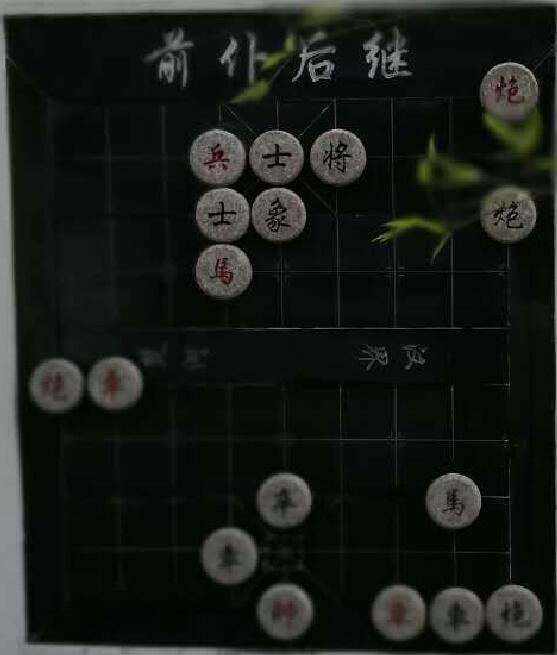 前仆后继
炮
兵 士 将
士 象 炮
馬
汉界
炮 車
卒 馬
車
帥 車 車 炮